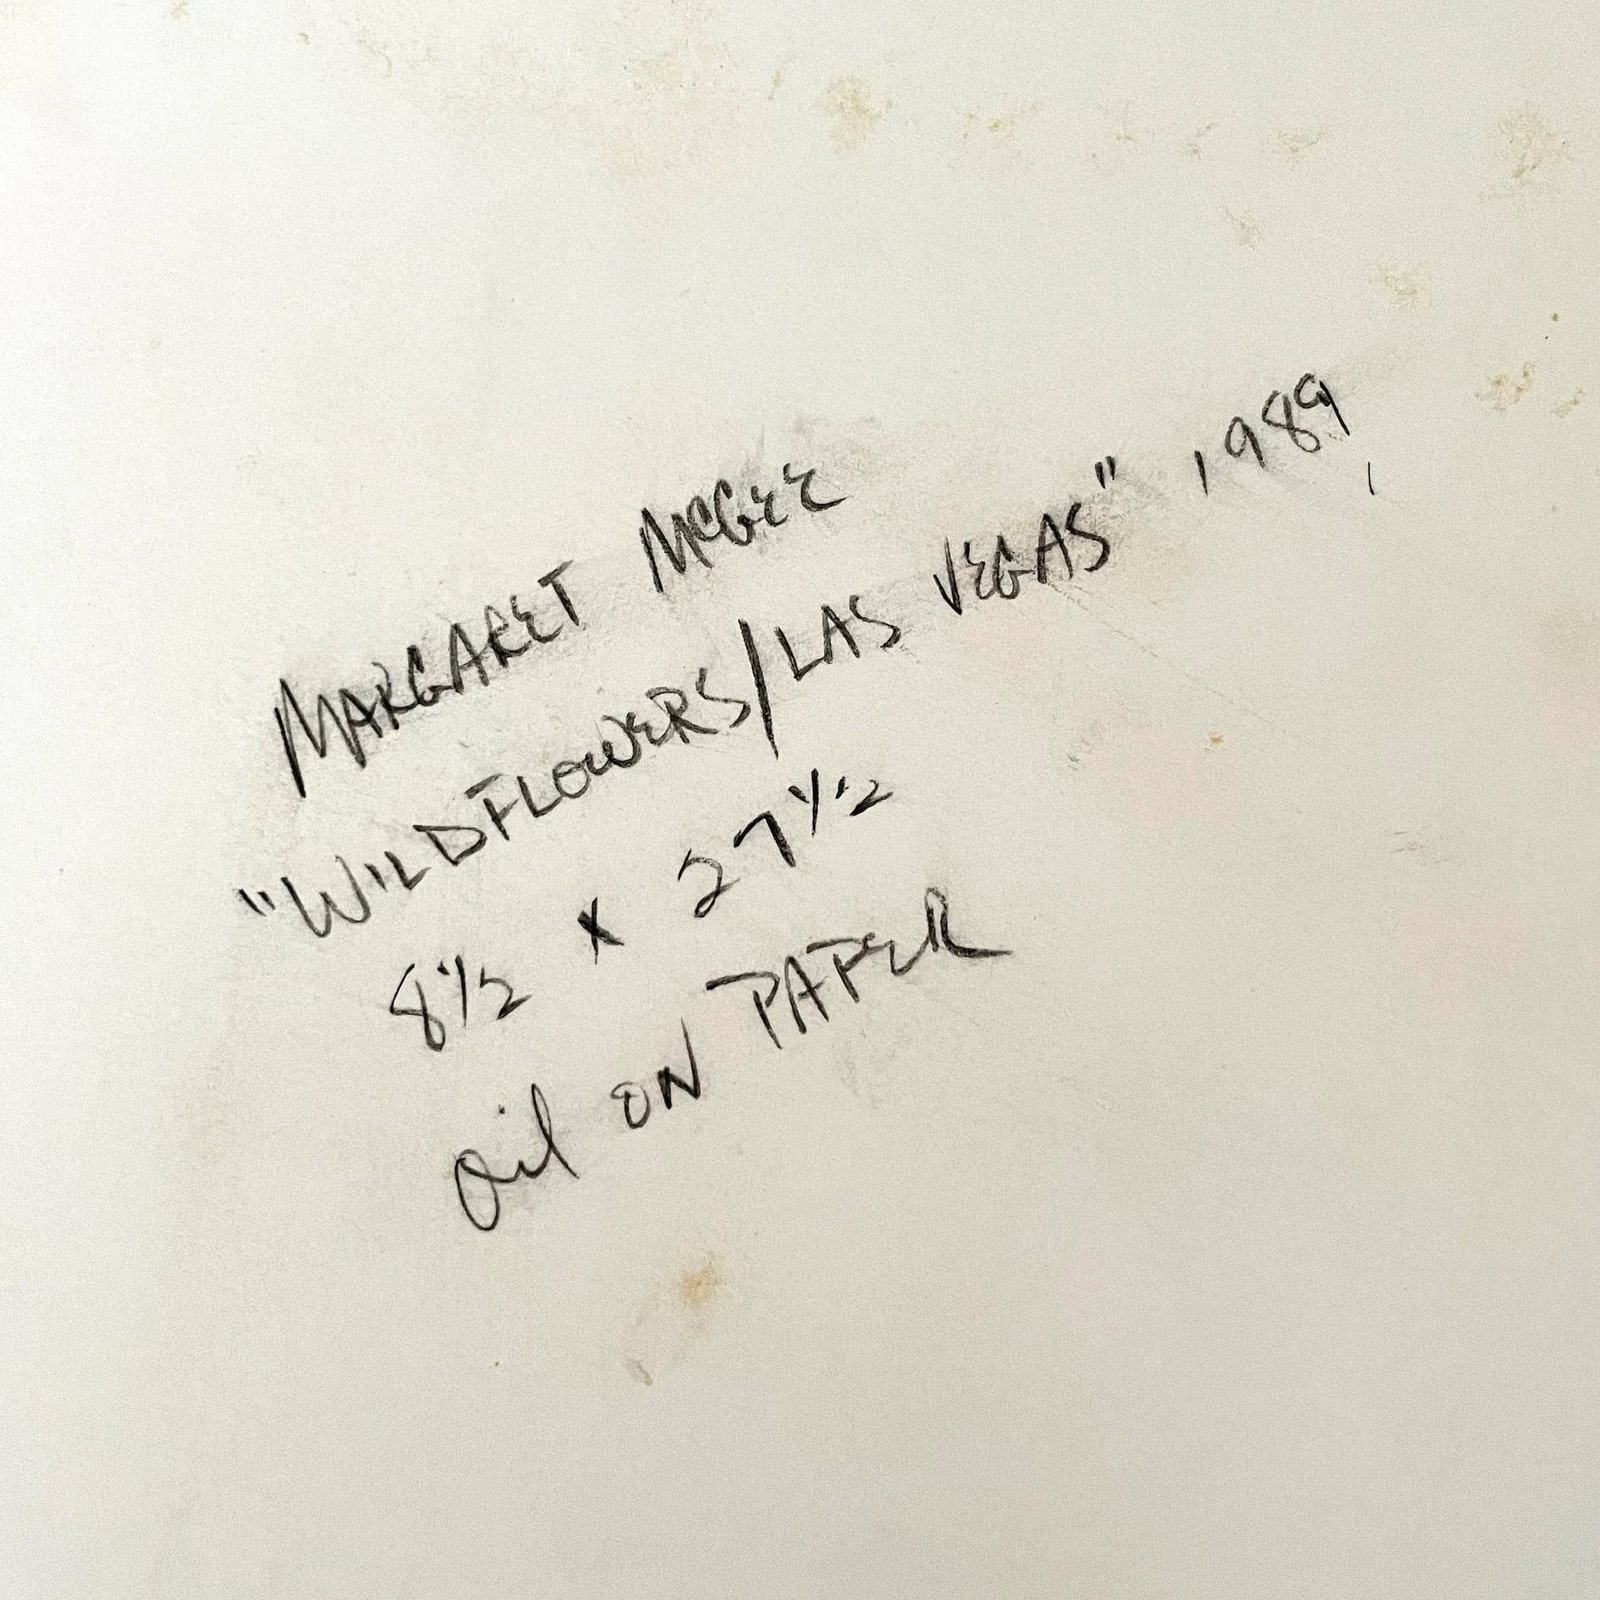 MARGARET McGEE
"WILDFLOWERS/LAS VEGAS" 1989,
8 1/2 x 27 1/2
oil ON PAPER